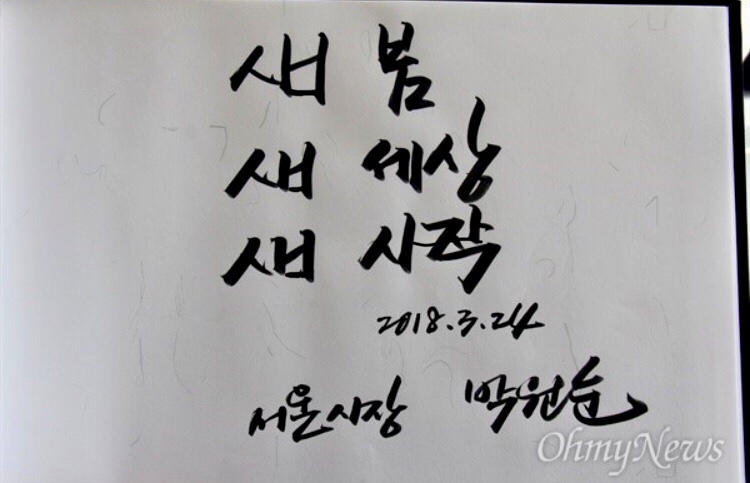 새 봄
새 세상
새 시작
2018.3.24
서울시장 박원순
OhmyNews